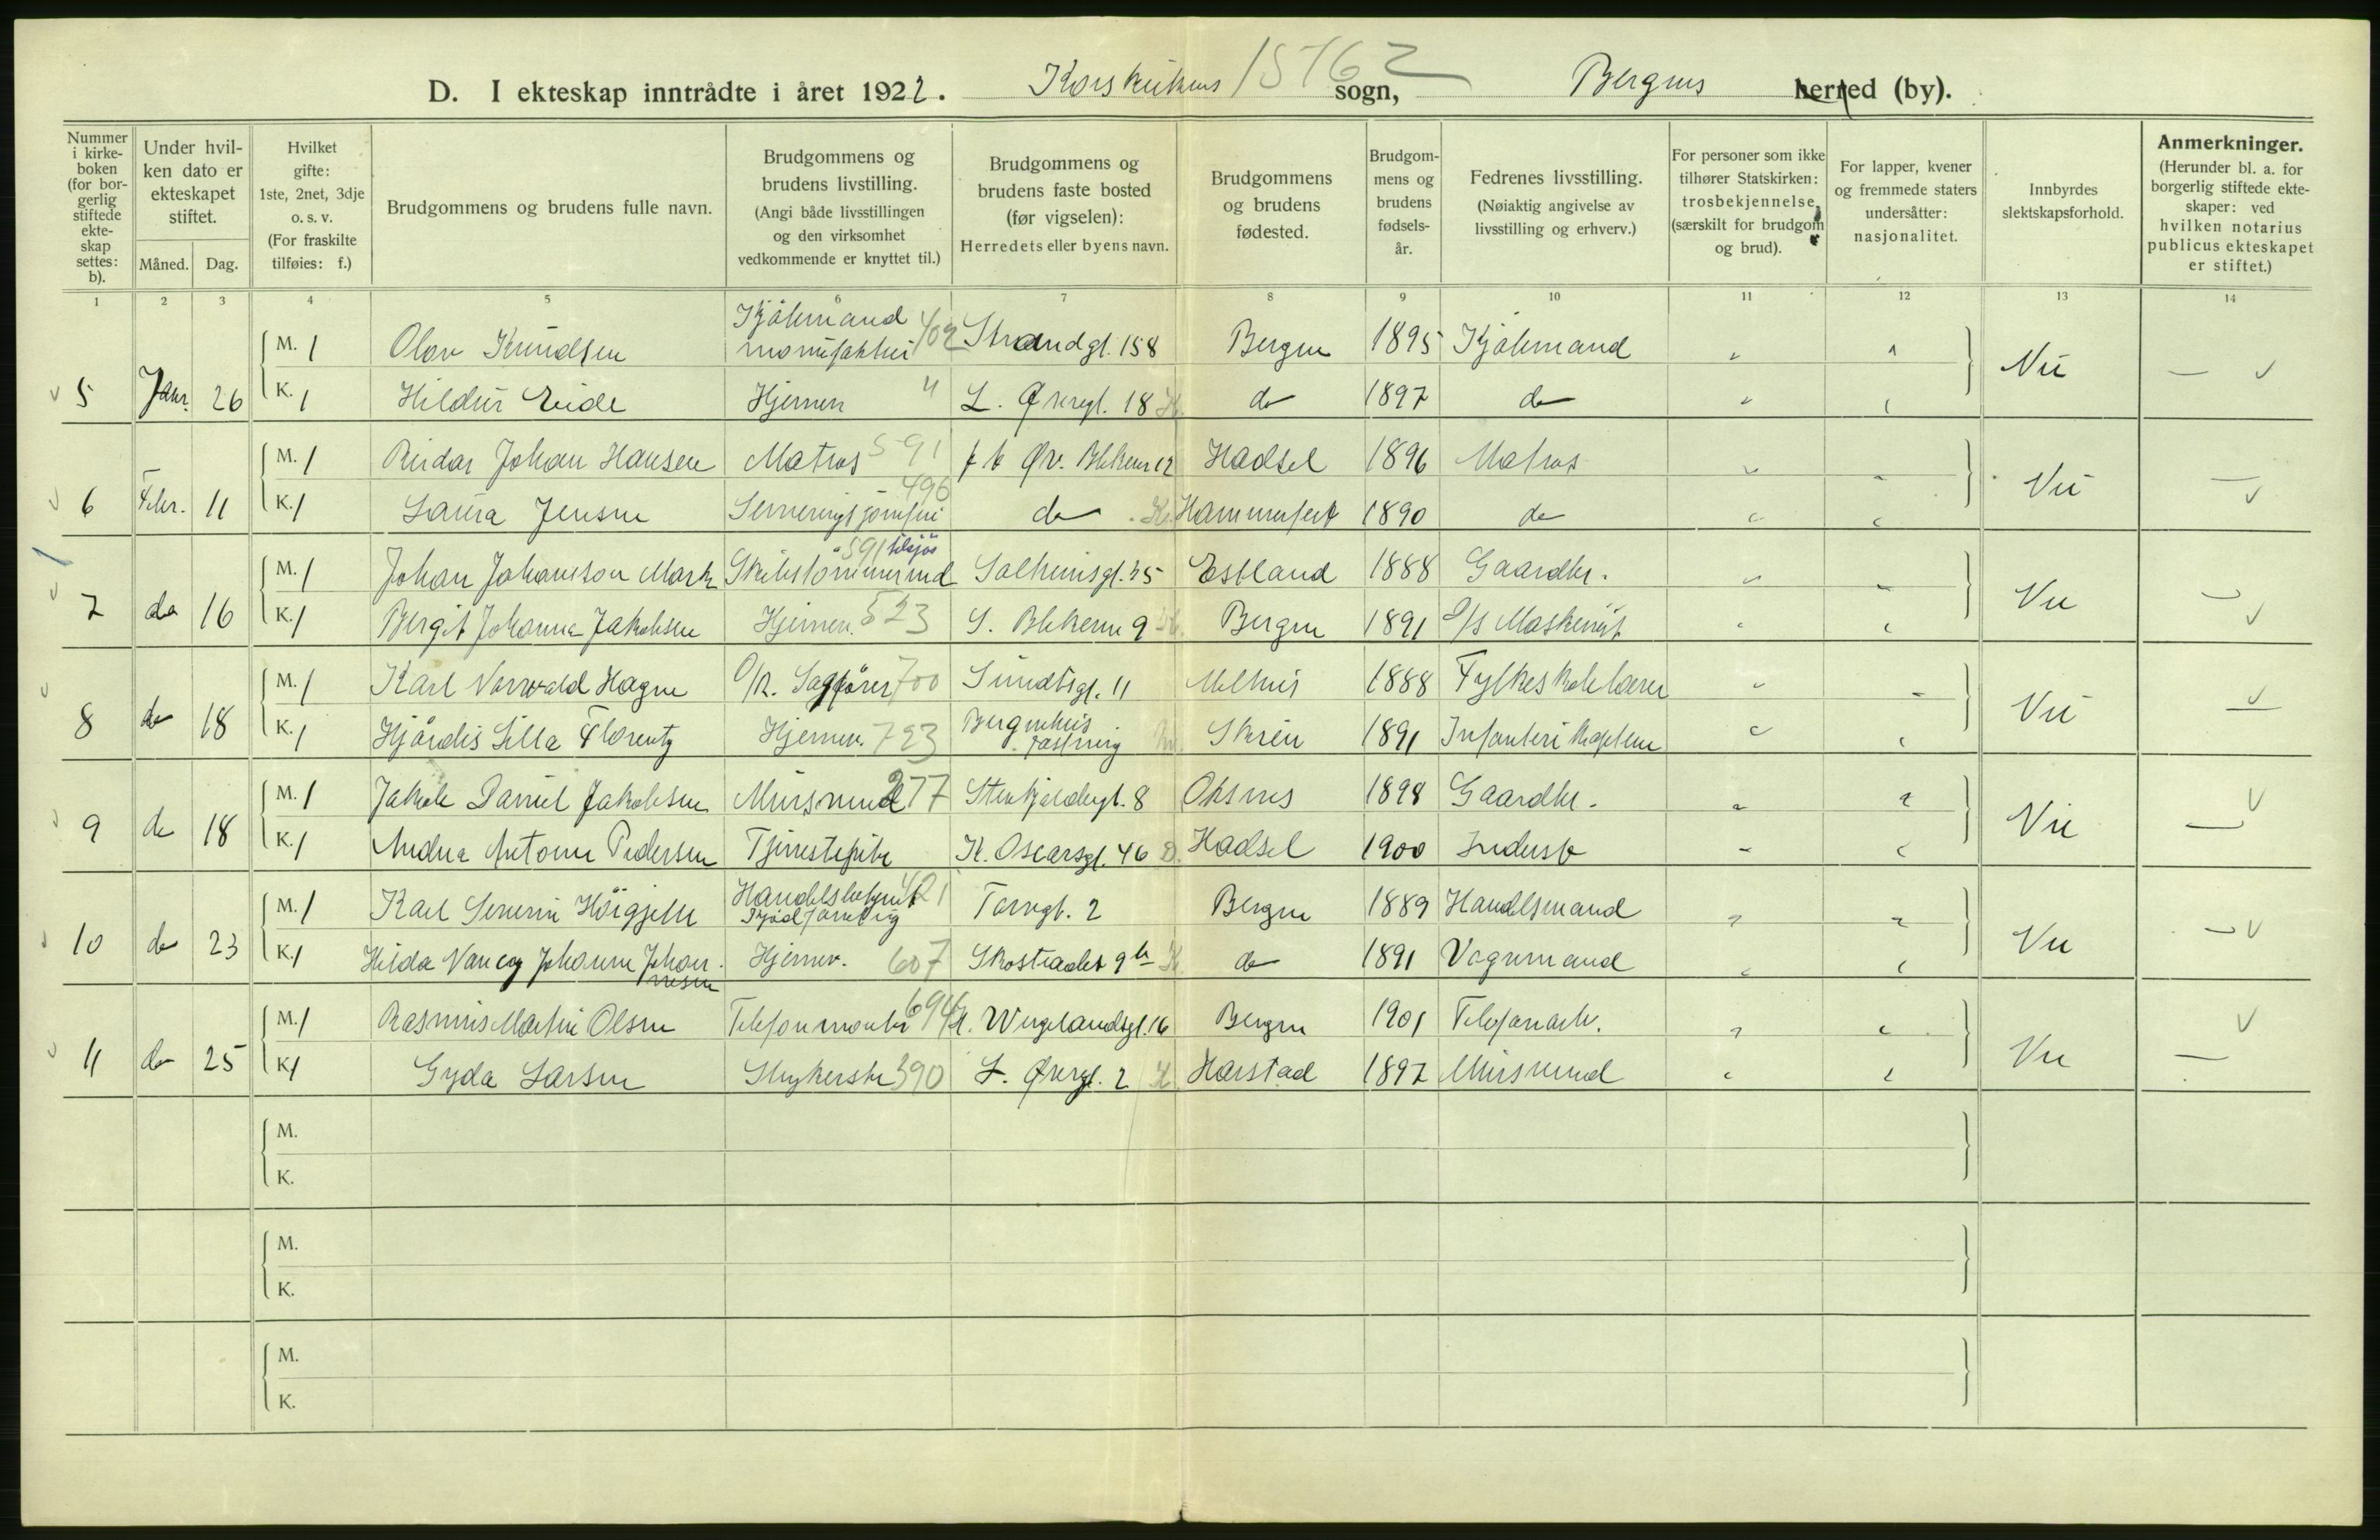 D. I ekteskap inntrådte i året 1922. Korskirkens 15762 sogn, Bergens herred (by).
Nummer i kirkeboken (for borgerlig stiftede ekteskap settes: b).
Under hvilken dato er ekteskapet stiftet.
Måned. Dag.
Hvilket gifte: 1ste, 2net, 3dje o. s. v. (For fraskilte tilføies: f.)
Brudgommens og brudens fulle navn.
Brudgommens og brudens livstilling. (Angi både livsstillingen og den virksomhet vedkommende er knyttet til.)
Brudgommens og brudens faste bosted (før vigselen): Herredets eller byens navn.
Brudgommens og brudens fødested.
Brudgommens og brudens fødselsår.
Fedrenes livsstilling. (Nøiaktig angivelse av livsstilling og erhverv.)
For personer som ikke tilhører Statskirken: trosbekjennelse (særskilt for brudgom og brud).
For lapper, kvener og fremmede staters undersåtter: nasjonalitet.
Innbyrdes slektskapsforhold.
Anmerkninger. (Herunder bl. a. for borgerlig stiftede ekteskaper: ved hvilken notarius publicus ekteskapet er stiftet.)
1 2 3 4 5 6 7 8 9 10 11 12 13 14
M. 1 Olav Knudsen Kjøbmand manufaktur 402 Strandgt. 158 Bergen 1895 Kjøbmand
5 Janr. 26 K. 1 Hildur Eide Hjemme " L. Øvregt. 18 do 1897 do Nei
M. 1 Reidar Johan Hansen Matros 591 Øv. Blekevei 12 Hadsel 1896 Matros
6 Febr. 11 K. 1 Laura Jensen Serveringsjomfru 496 do Hammerfest 1890 do Nei
M. 1 Johan Johanson Mark Skibstømmermd 591 tilsjøs Solheimsgt. 35 Estland 1888 Gaardbr.
7 do 16 K. 1 Bergit Johanna Jakobsen Hjemme. 523 S. Blekevei 9 Bergen 1891 D/S Maskinist Nei
M. 1 Karl Norvald Hagen O/R. Sagfører 700 Sundtsgt. 11 Melhus 1888 Fylkeskolelærer
8 do 18 K. 1 Hjørdis Lilla Florentz Hjemme. 723 Bergenhus fæstning Skien 1891 Infanteri kaptein Nei
M. 1 Jakob Daniel Jakobsen Mursvend 277 Stenkjeldergt. 8 Øksnes 1898 Gaardbr.
9 do 18 K. 1 Andrea Antonie Pedersen Tjenestepike K. Oscarsgt. 46 Hadsel 1900 Inderst Nei
M. 1 Karl Severin Høigjelle Handelsbetjent 421 Kjødforretnig Torvgt. 2 Bergen 1889 Handelsmand
10 do 23 K. 1 Hilda Nancy Johanne Johannesen Hjemme. 607 Skostrædet 9b do 1891 Vognmand Nei
M. 1 Rasmus Martin Olsen Telefonmontør 694 H. Wergelandsgt. 16 Bergen 1901 Telefonarb.
11 do 25 K. 1 Gyda Larsen Strykerske 390 L. Øvregt. 2 Harstad 1897 Mursvend Nei
M.
K.
M.
K.
M.
K.